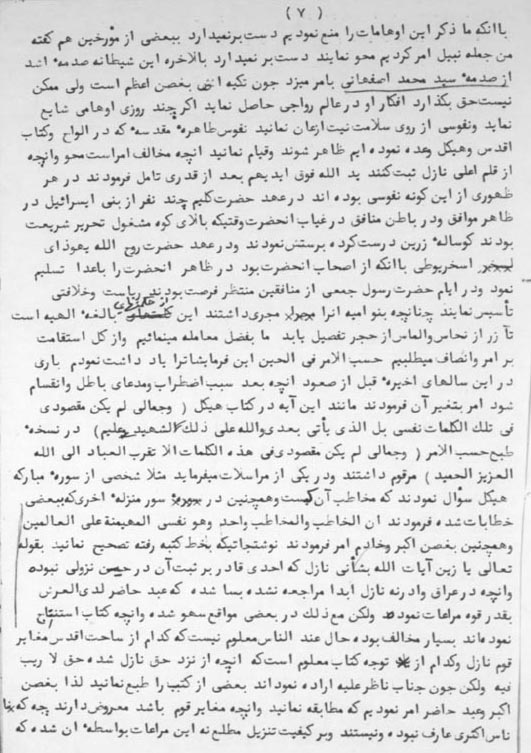 ( ۷ )
با آنکه ما ذکر این اوهامات را منع نمودیم دست بر نمیدارد ببعضی از مؤرخین هم گفته
من جمله نبیل امر کردیم محو نمایند دست بر نمیدارد بالاخره این شیطانه صدمه اشد
از صدمه سید محمد اصفهانی بامر میزند چون تکیه اش بغصن اعظم است ولی ممکن
نیست حق بگذارد افکار او در عالم رواجی حاصل نماید اگر چند روزی اوهامی شایع
نماید ونفوسی از روی سلامت نیت اذعان نمایند نفوس ظاهره مقدسه که در الواح وکتاب
اقدس وهیکل وعده نموده ایم ظاهر شوند وقیام نمایند آنچه مخالف امر است محو وآنچه
از قلم اعلی نازل ثبت کنند ید الله فوق ایدیهم بعد از قدری تامل فرمودند در هر
ظهوری از این گونه نفوسی بوده اند در عهد حضرت کلیم چند نفر از بنی اسرائیل در
ظاهر موافق ودر باطن منافق در غیاب آنحضرت وقتیکه بالای کوه مشغول تحریر شریعت
بودند گوساله زرین درست کرده پرستش نمودند ودر عهد حضرت روح الله یهوذای
اسخریوطی با آنکه از اصحاب آنحضرت بود در ظاهر آنحضرت را باعدا تسلیم
نمود ودر ایام حضرت رسول جمعی از منافقین منتظر فرصت بودند ریاست وخلافتی
تأسیس نمایند چنانچه بنو امیه آنرا مجری داشتند این بالغه الهیه است
تا زر از نحاس والماس از حجر تفصیل یابد ما بفضل معامله مینمائیم واز کل استقامت
بر امر وانصاف میطلبیم حسب الامر فی الحین ابن فرمایشاترا یاد داشت نمودم باری
در این سالهای اخیره قبل از صعود آنچه بعد سبب اضطراب ومدعای باطل وانقسام
شود امر بتغیر آن فرمودند مانند این آیه در کتاب هیکل ( وجمالی لم یکن مقصودی
فی تلک الکلمات نفسی بل الذی یأتی بعدی والله علی ذلک الشهید وعلیم ) در نسخه
طبع حسب الامر ( وجمالی لم یکن مقصودی فی هذه الکلمات الا تقرب العباد الی الله
العزیز الحمید ) مرقوم داشتند ودر یکی از مراسلات میفرماید مثلا شخصی از سوره مبارکه
هیکل سؤال نمودند که مخاطب آن کیست وهمچنین در سور منزله اخری که ببعضی
خطابات شده فرمودند ان الخاطب والمخاطب واحد وهو نفسی المهیمنة علی العالمین
وهمچنین بغصن اکبر وخادم امر فرمودند نوشتجاتیکه بخط کتبه رفته تصحیح نمایند بقوله
تعالی یا زین آیات الله بشأنی نازل که احدی قادر بر ثبت آن در حین نزولی نبوده
وآنچه در عراق وادرنه نازل ابدا مراجعه نشده بسا شده که عبد حاضر لدی العرش
بقدر قوه مراعات نموده ولکن مع ذلک در بعضی مواقع سهو شده وآنچه کتاب استنتاج
نموده اند بسیار مخالف بوده حال عند الناس معلوم نیست که کدام از ساحت اقدس مغایر
قوم نازل وکدام از توجه کتاب معلوم است که آنچه از نزد حق نازل شده حق لا ریب
فیه ولکن چون جناب ناظر علیه اراده نموده اند بعضی از کتب را طبع نمایند لذا بغصن
اکبر وعبد حاضر امر نمودیم که مطابقه نمایند وآنچه مغایر قوم باشد معروض دارند چه که
ناس اکثری عارف نبوده ونیستند وبر کیفیت تنزیل مطلع نه این مراعات بواسطه آن شده که